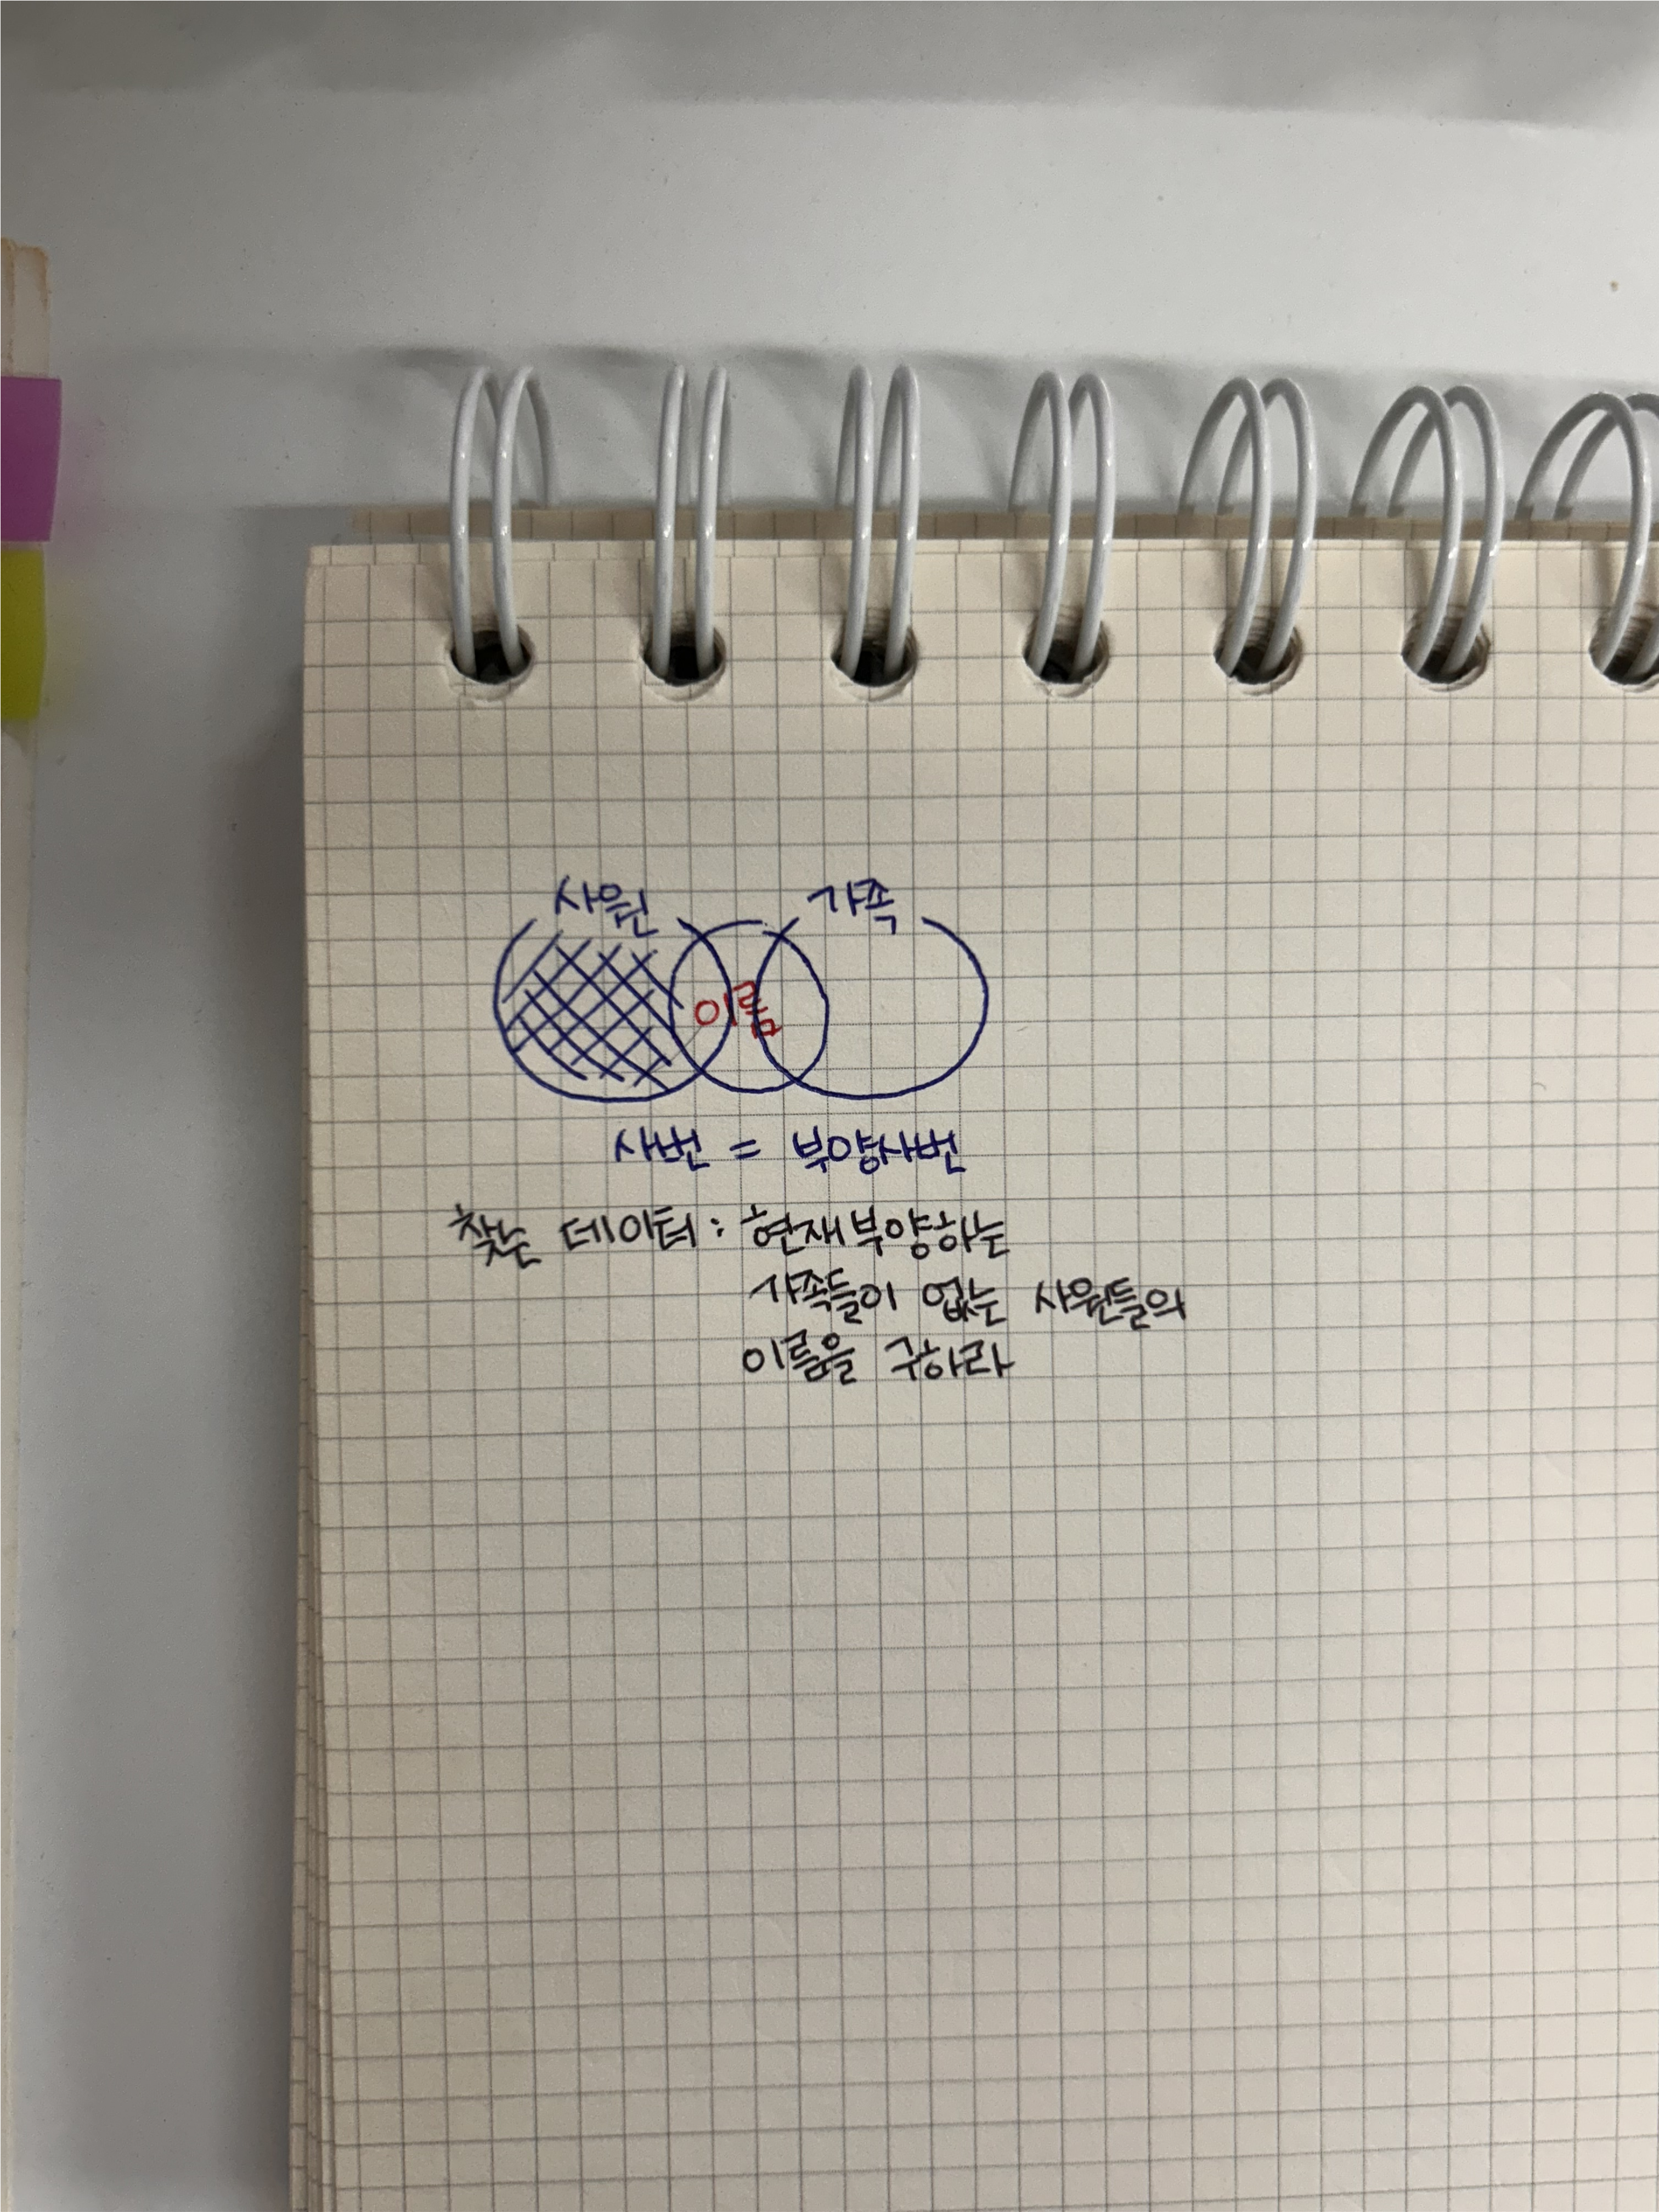 사원 가족
이름
사번 = 부양사번
찾는 데이터 : 현재부양하는
가족들이 없는 사원들의
이름을 구하라